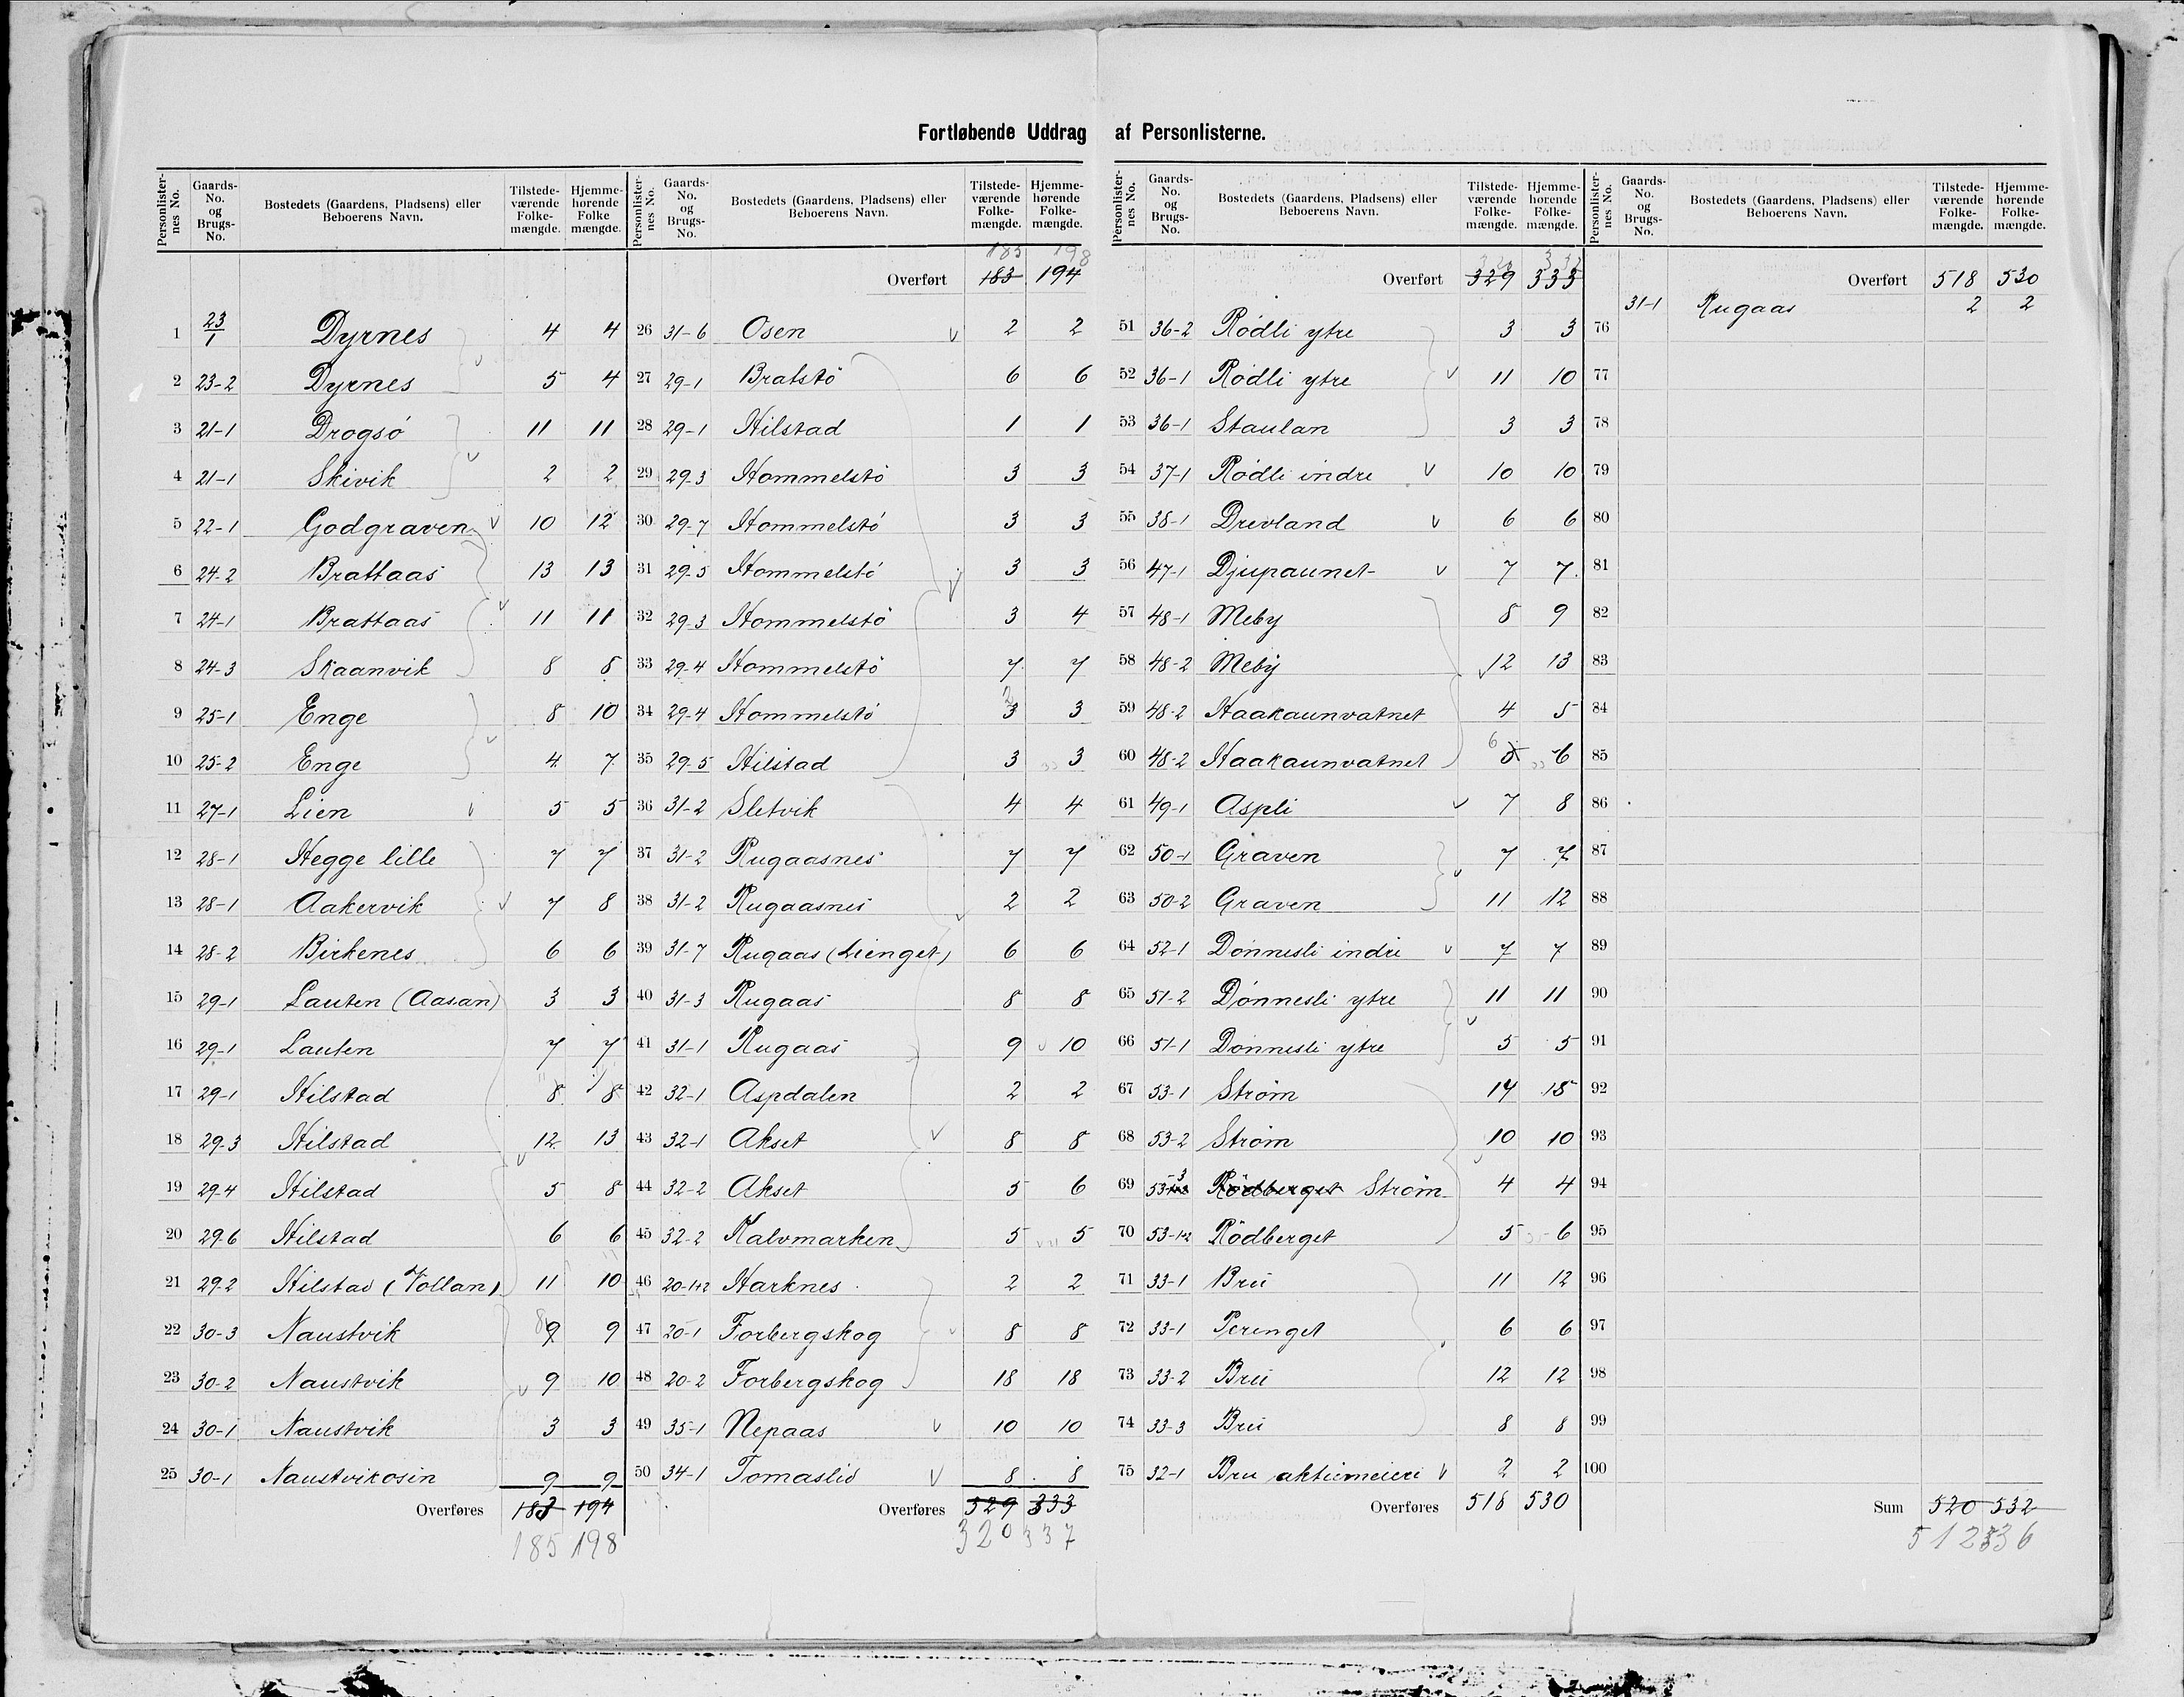 Fortløbende Uddrag af Personlisterne.
Personlister-nes No. Gaards-No. og Brugs-No. Bostedets (Gaardens, Pladsens) eller Beboerens Navn. Tilstede-værende Folke-mængde. Hjemme-hørende Folke mængde.
1 23/1 Dyrnes 4 4
2 23-2 Dyrnes 5 4
3 21-1 Drogsö 11 11
4 21-1 Skivik 2 2
5 22-1 Godgraven v 10 12
6 24-2 Brattaas 13 13
7 24-1 Brattaas 11 11
8 24-3 Skaanvik 8 8
9 25-1 Enge 8 10
10 25-2 Enge 4 7
11 27-1 Lien v 5 5
12 28-1 Hegge lille 7 7
13 28-1 Aakervik v 7 8
14 28-2 Birkenes 6 6
15 29-1 Lauten (Aasan) 3 3
16 29-1 Lauten 7 7
17 29-1 Hilstad 8 8
18 29-3 Hilstad 12 13
19 29-4 Hilstad 5 8
20 29-6 Hilstad 6 6
21 29-2 Hilstad (Vollan) 11 10
22 30-3 Naustvik 9 9
23 30-2 Naustvik v 9 10
24 30-1 Naustvik 3 3
25 30-1 Naustvikosin 9 9
Overføres 183 194
185 198
Personlister-nes No. Gaards-No. og Brugs-No. Bostedets (Gaardens, Pladsens) eller Beboerens Navn. Tilstede-værende Folke-mængde. Hjemme-hørende Folke-mængde.
185 198
Overført 183 194
26 31-6 Osen v 2 2
27 29-1 Bratstö 6 6
28 29-1 Hilstad 1 1
29 29-3 Hommelstö 3 3
30 29-7 Hommelstö 3 3
31 29-5 Hommelstö 3 3
32 29-3 Hommelstö 3 4
33 29-4 Hommelstö 7 7
34 29-4 Hommelstö 3 3
35 29-5 Hilstad 3 3
36 31-2 Sletvik 4 4
37 31-2 Rugaasnes 7 7
38 31-2 Rugaasnes 2 2
39 31-7 Rugaas (Lienget) 6 6
40 31-3 Rugaas 8 8
41 31-1 Rugaas 9 10
42 32-1 Aspdalen 2 2
43 32-1 Akset v 8 8
44 32-2 Akset 5 6
45 32-2 Kalvmarken 5 5
46 20-1+2 Harknes 2 2
47 20-1 Forbergskog v 8 8
48 20-2 Forbergskog 18 18
49 35-1 Nepaas v 10 10
50 34-1 Tomaslid v 8 8
Overføres 329 333
320 337
Personlister-nes No. Gaards-No. og Brugs-No. Bostedets (Gaardens, Pladsens) eller Beboerens Navn. Tilstede-værende Folke-mængde. Hjemme-hørende Folke-mængde.
Overført 329 333
51 36-2 Rödli ytre 3 3
52 36-1 Rödli ytre v 11 10
53 36-1 Staulan 3 3
54 37-1 Rödli indre v 10 10
55 38-1 Drevland v 6 6
56 47-1 Djupaunet v 7 7
57 48-1 Meby 8 9
58 48-2 Meby v 12 13
59 48-2 Haakaunvatnet 4 5
60 48-2 Haakaunvatnet 6 6
61 49-1 Aspli v 7 8
62 50-1 Graven 7 7
63 50-2 Graven 11 12
64 52-1 Dönnesli indre v 7 7
65 51-2 Dönnesli ytre 11 11
66 51-1 Dönnesli ytre 5 5
67 53-1 Ström 14 15
68 53-2 Ström 10 10
69 53-3 Rödberget Ström 4 4
70 53-1+2 Rödberget 5 6
71 33-1 Bru 11 12
72 33-1 Perenget 6 6
73 33-2 Bru 12 12
74 33-3 Bru 8 8
75 32-1 Bru aktiemeieri v 2 2
Overføres 518 530
Personlister-nes No. Gaards-No. og Brugs-No. Bostedets (Gaardens, Pladsens) eller Beboerens Navn. Tilstede-værende Folke-mængde. Hjemme-hørende Folke-mængde.
Overført 518 530
31-1 Rugaas 2 2
76
77
78
79
80
81
82
83
84
85
86
87
88
89
90
91
92
93
94
95
96
97
98
99
100
Sum 520 532
512 536